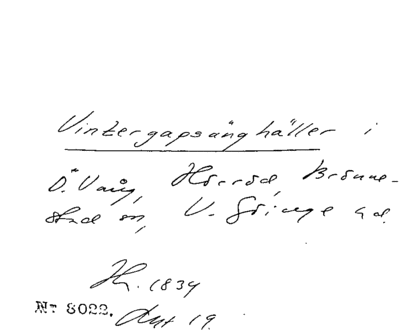 Vintergapsänghäller i
Ö. Vång, Hörröd, Brönne-
stad sn, V. Göinge hd.
H. 1834
Nr 8022. Aut 19.